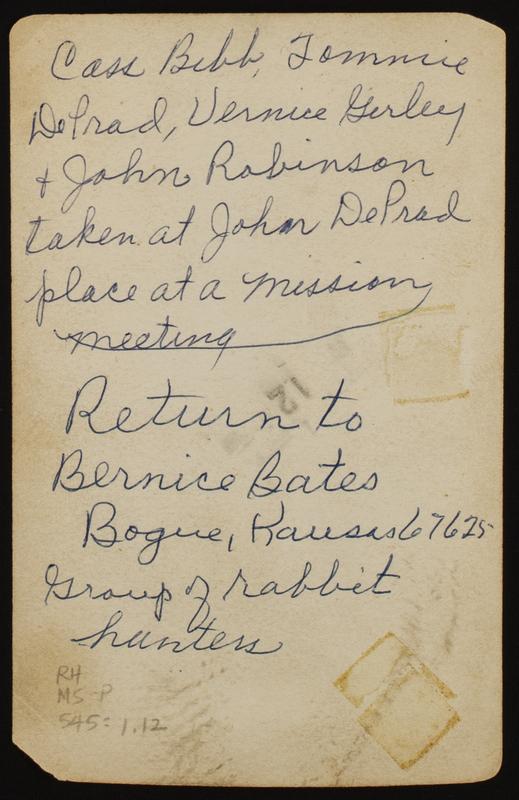 Cass Bibb, Tommie
DePrad, Vernice Gerley
+ John Robinson
taken at John DePrad
place at a mission
meeting
12
Return to
Bernice Bates
Bogue, Kansas 67625
Group of rabbit
hunters
RH
MS-P
545:1.12